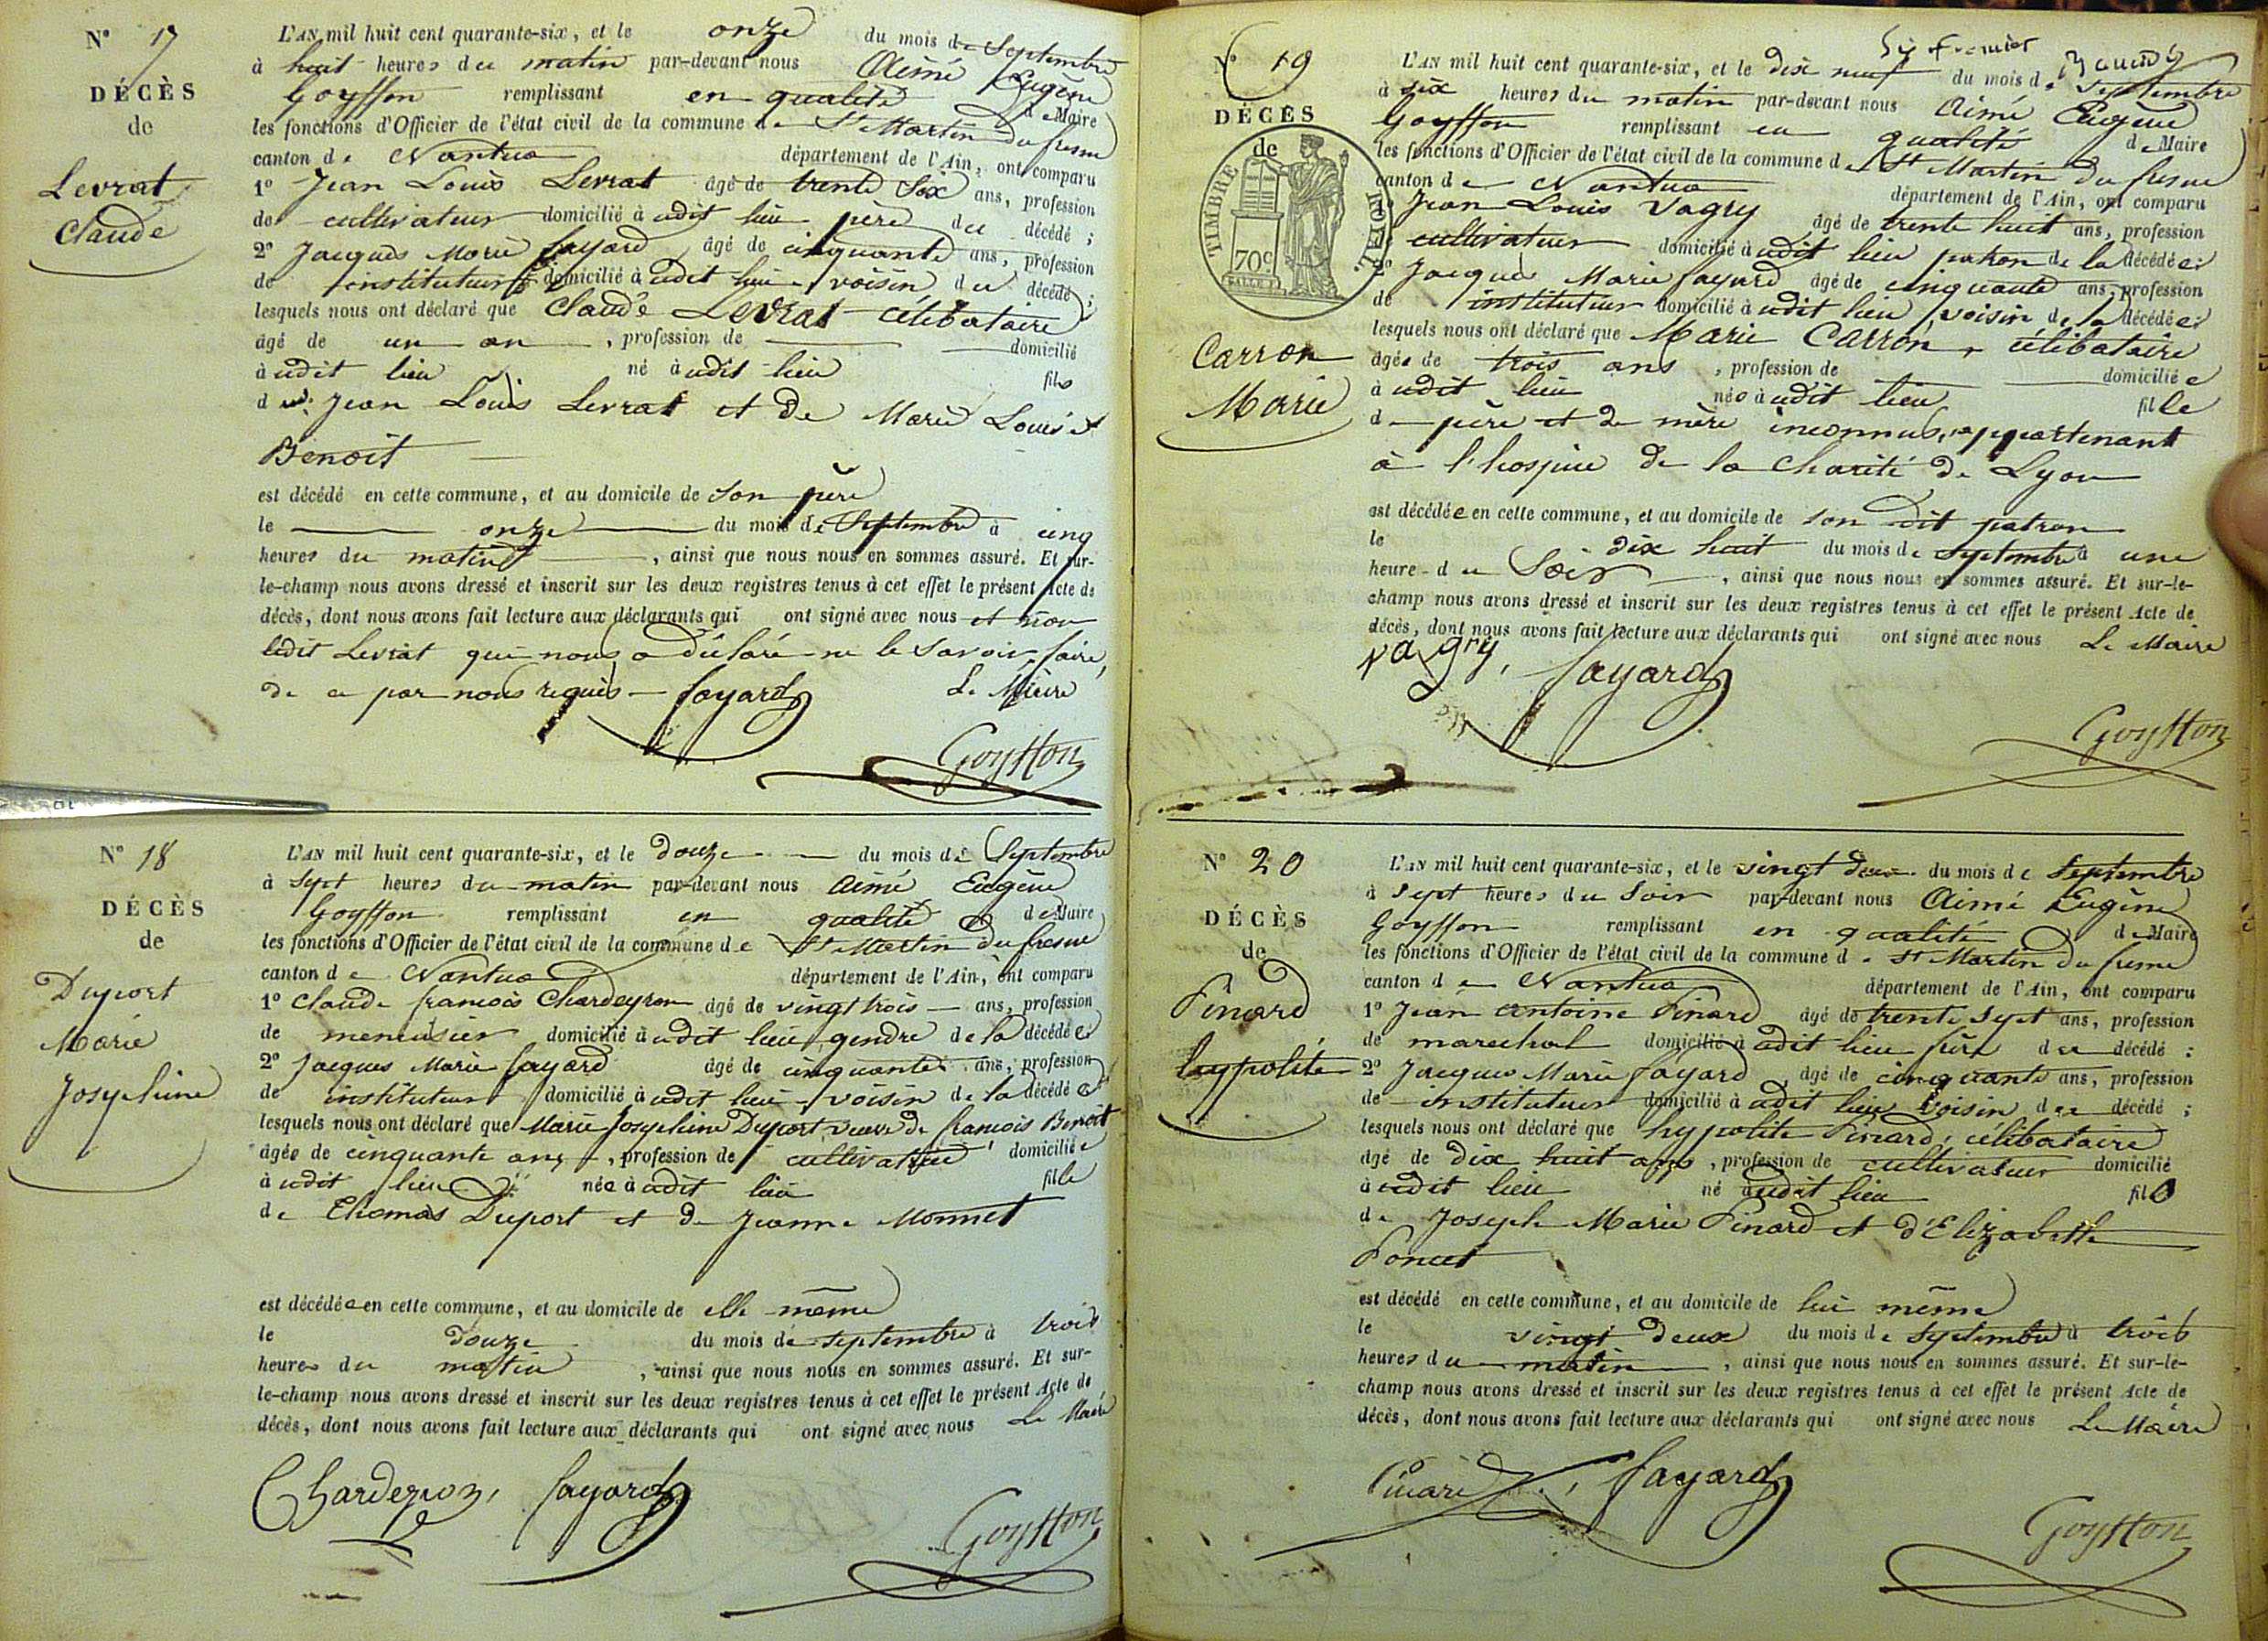 N° 17
DÉCÈS
de
Levrat
Claude
L'AN mil huit cent quarante-six, et le onze du mois de Septembre
à huit heures du matin par-devant nous Aimé Eugène
Goyffon remplissant en qualité de Maire
les fonctions d'Officier de l'état civil de la commune de St Martin du fresne
canton de Nantua département de l'Ain, ont comparu
1° Jean Louis Levrat âgé de trente six ans, profession
de cultivateur domicilié à udit lieu père du décédé ;
2° Jacques Marie fayard âgé de cinquante ans, profession
de instituteur domicilié à udit lieu voisin du décédé ;
lesquels nous ont déclaré que Claude Levrat célibataire
âgé de un an , profession de domicilié
à udit lieu né à udit lieu fils
de Jean Louis Levrat et de Marie Louise
Benoit
est décédé en cette commune, et au domicile de son père
le onze du mois de Septembre à cinq
heures du matin , ainsi que nous nous en sommes assuré. Et sur-
le-champ nous avons dressé et inscrit sur les deux registres tenus à cet effet le présent Acte de
décès, dont nous avons fait lecture aux déclarants qui ont signé avec nous et non
ledit Levrat qui nous a déclaré ne le savoir faire,
de ce par nous requis fayard Le Maire
Goyffon
N° 18
DÉCÈS
de
Duport
Marie
Josephine
L'AN mil huit cent quarante-six, et le douze du mois de Septembre
à sept heures du matin par-devant nous Aimé Eugène
Goyffon remplissant en qualité de Maire
les fonctions d'Officier de l'état civil de la commune de St Martin du fresne
canton de Nantua département de l'Ain, ont comparu
1° Claude françois Chardeyron âgé de vingt trois ans, profession
de menuisier domicilié à udit lieu, gendre de la décédée
2° Jacques Marie fayard âgé de cinquante ans, profession
de instituteur domicilié à udit lieu voisin de la décédée
lesquels nous ont déclaré que Marie Josephine Duport, veuve de françois Benoit
âgée de cinquante ans , profession de cultivatrice domiciliée
à udit lieu née à udit lieu fille
de Thomas Duport et de Jeanne Monnet
est décédée en cette commune, et au domicile de elle même
le douze du mois de septembre à trois
heures du matin , ainsi que nous nous en sommes assuré. Et sur-
le-champ nous avons dressé et inscrit sur les deux registres tenus à cet effet le présent Acte de
décès, dont nous avons fait lecture aux déclarants qui ont signé avec nous Le Maire
Chardeyron, fayard
Goyffon
N° 19
DÉCÈS
de
TIMBRE ROYAL
70c
Carron
Marie
L'AN mil huit cent quarante-six, et le dix neuf du mois de Septembre
à six heures du matin par-devant nous Aimé Eugène
Goyffon remplissant en qualité de Maire
les fonctions d'Officier de l'état civil de la commune de St Martin du fresne
canton de Nantua département de l'Ain, ont comparu
Jean Louis Vagry âgé de trente huit ans, profession
de cultivateur domicilié à udit lieu patron de la décédée
2° Jacques Marie fayard âgé de cinquante ans, profession
de instituteur domicilié à udit lieu voisin de la décédée
lesquels nous ont déclaré que Marie Carron, célibataire
âgée de trois ans , profession de domiciliée
à udit lieu née à udit lieu fille
de père et de mère inconnus, appartenant
à l'hospice de la Charité de Lyon
est décédée en cette commune, et au domicile de son dit patron
le dix huit du mois de septembre à une
heure du Soir , ainsi que nous nous en sommes assuré. Et sur-le-
champ nous avons dressé et inscrit sur les deux registres tenus à cet effet le présent Acte de
décès, dont nous avons fait lecture aux déclarants qui ont signé avec nous Le Maire
vagry, fayard
Goyffon
N° 20
DÉCÈS
de
Pinard
hypolite
L'AN mil huit cent quarante-six, et le vingt deux du mois de Septembre
à sept heures du Soir par-devant nous Aimé Eugène
Goyffon remplissant en qualité de Maire
les fonctions d'Officier de l'état civil de la commune de St Martin du fresne
canton de Nantua département de l'Ain, ont comparu
1° Jean Antoine Pinard âgé de trente sept ans, profession
de marechal domicilié à udit lieu frère du décédé ;
2° Jacques Marie fayard, âgé de cinquante ans, profession
de instituteur domicilié à udit lieu voisin du décédé ;
lesquels nous ont déclaré que hypolite Pinard, célibataire
âgé de dix huit ans , profession de cultivateur domicilié
à udit lieu né à udit lieu fils
de Joseph Marie Pinard et d'Elizabeth
Poncet
est décédé en cette commune, et au domicile de lui même
le vingt deux du mois de Septembre à trois
heures du matin , ainsi que nous nous en sommes assuré. Et sur-le-
champ nous avons dressé et inscrit sur les deux registres tenus à cet effet le présent Acte de
décès, dont nous avons fait lecture aux déclarants qui ont signé avec nous Le Maire
Pinard, fayard
Goyffon